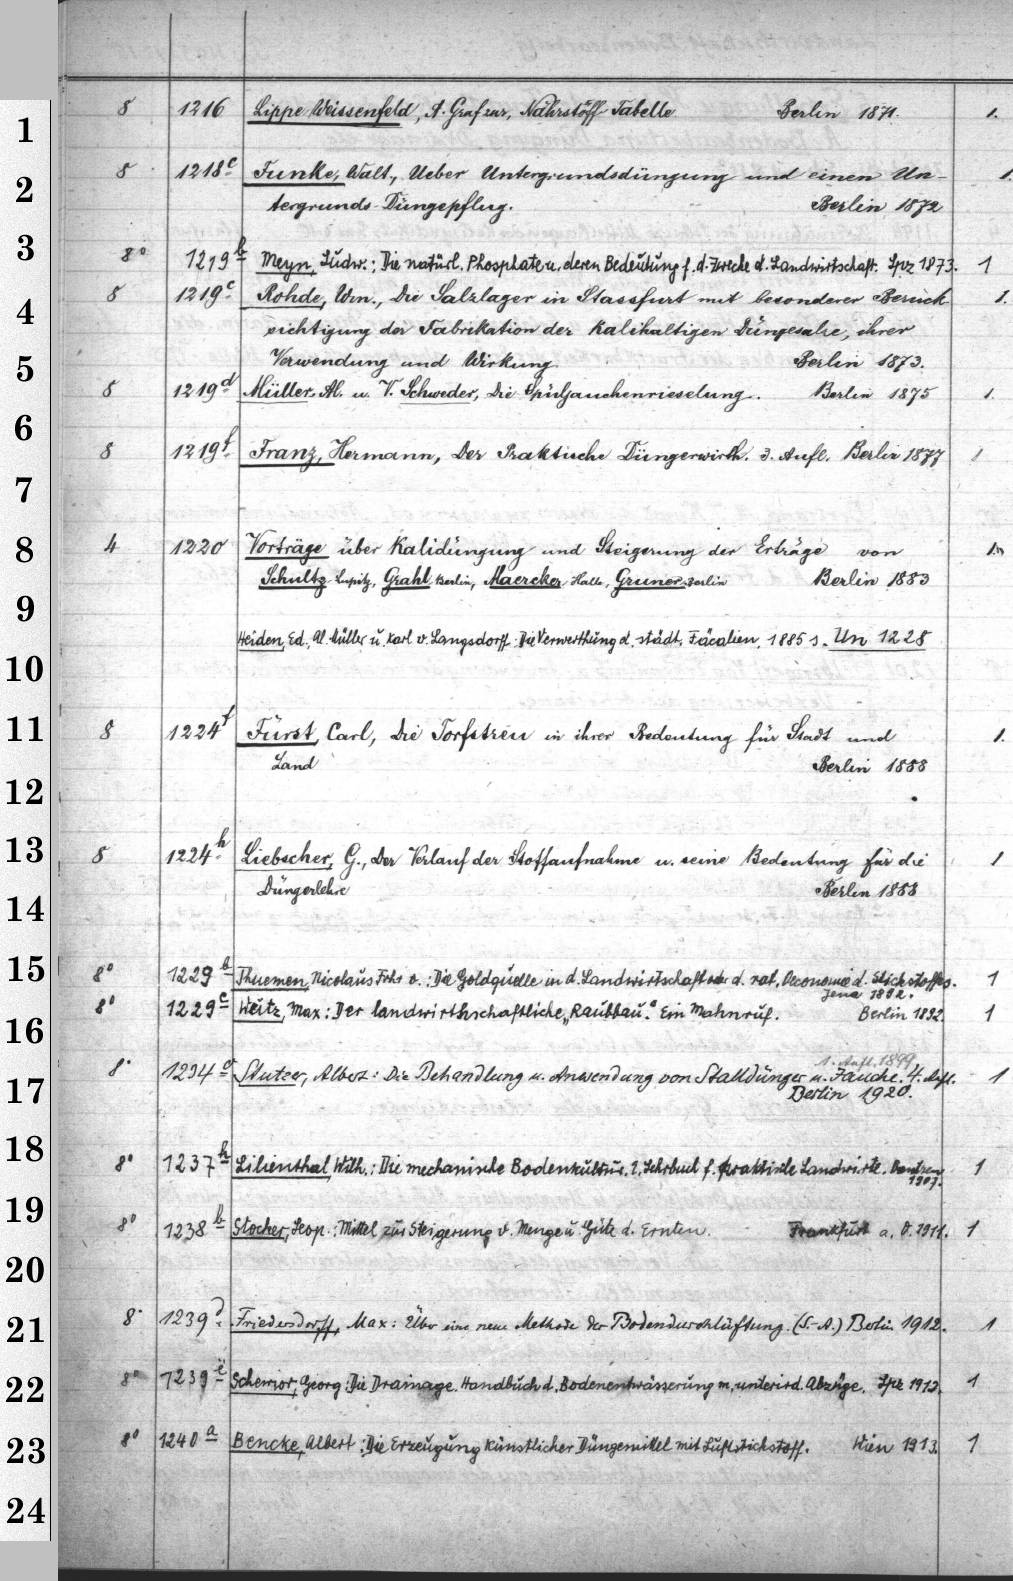 1
2
3
4
5
6
7
8
9
10
11
12
13
14
15
16
17
18
19
20
21
22
23
24
8 1216 Lippe Weissenfeld, A. Graf zur, Nährstoff Tabelle Berlin 1871. 1.
8 1218c Funke, Walt., Ueber Untergrundsdüngung und einen Un- 1.
tergrunds-Düngepflug. Berlin 1872
8° 1219b Meyn, Ludw.: Die natürl. Phosphate u. deren Bedeutung f. d. Zwecke d. Landwirtschaft. Lpz 1873. 1
8 1219c Rohde, Wm., Die Salzlager in Stassfurt mit besonderer Berück 1.
sichtigung der Fabrikation der Kalihaltigen Düngesalze, ihrer
Verwendung und Wirkung Berlin 1873.
8 1219d Müller, Al. u. V. Schweder, Die Spüljauchenrieselung. Berlin 1875 1.
8 1219f Franz, Hermann, Der Praktische Düngerwirth. 3. Aufl. Berlin 1877 1
4 1220 Vorträge über Kalidüngung und Steigerung der Erträge von
Schultz Lupitz, Grahl Berlin, Maercker Halle, Gruner Berlin Berlin 1883
Heiden, Ed., Al. Müller u. Karl v. Langsdorff: Die Verwerthung d. städt. Fäcalien. 1885 s. Un 1228
8 1224f Fürst, Carl, Die Torfstreu in ihrer Bedeutung für Stadt und 1.
Land Berlin 1888
8 1224h Liebscher, G., Der Verlauf der Stoffaufnahme u. seine Bedeutung für die 1
Düngerlehre Berlin 1888
8° 1229b Thuemen, Nicolaus Frhr v.: Die Goldquelle in d. Landwirtschaft d. rat. Oeconomie d. Stickstoffes. 1
Jena 1892.
8° 1229c Weitz, Max: Der landwirthschaftliche „Raubbau". Ein Mahnruf. Berlin 1892. 1
1. Aufl. 1899
8° 1234e Stutzer, Albert: Die Behandlung u. Anwendung von Stalldünger u. Jauche. 4. Aufl. 1
Berlin 1920.
8° 1237h Lilienthal, Wilh.: Die mechanische Bodenkultur. 1. Lehrbuch f. praktische Landwirte. 1
1907.
8° 1238b Stocher, Leop.: Mittel zur Steigerung v. Menge u. Güte d. Ernten. Frankfurt a. O. 1911. 1
8° 1239d Friedersdorff, Max: Über eine neue Methode der Bodendurchlüftung. (S.-A.) Berlin 1912. 1
8° 1239e Schewior, Georg: Die Drainage. Handbuch d. Bodenentwässerung m. unterird. Abzüge. Lpz 1912. 1
8° 1240a Bencke, Albert: Die Erzeugung künstlicher Düngemittel mit Luftstickstoff. Wien 1913. 1